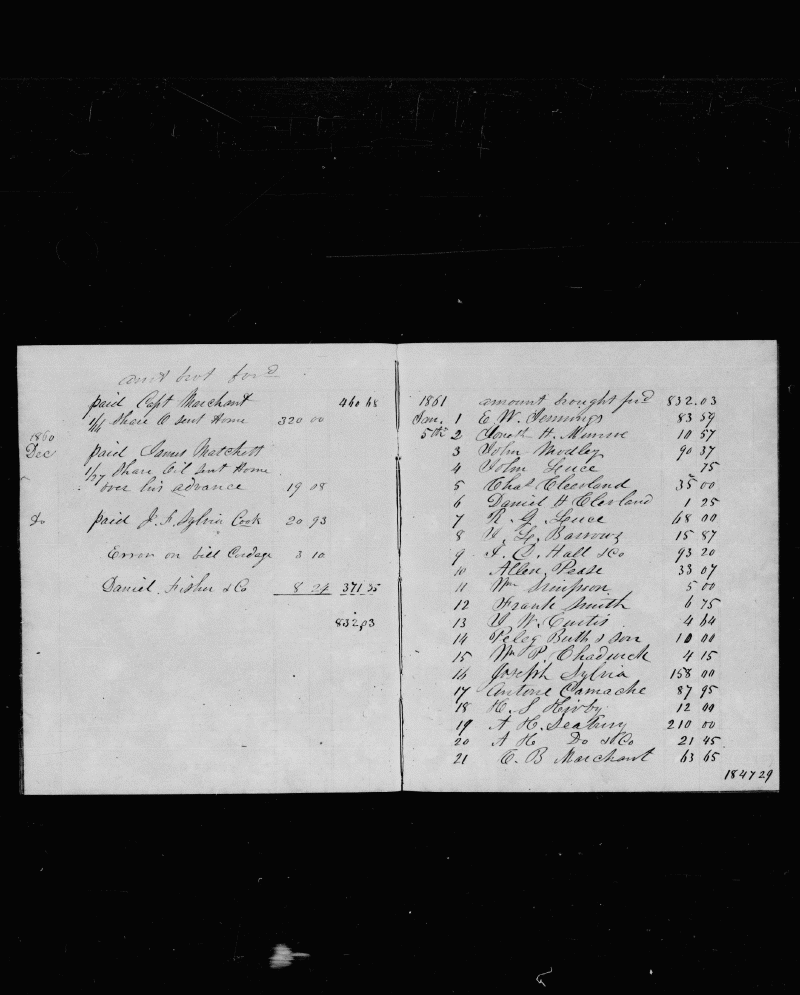 amt brot ford
paid Capt Marchant 460 68
1/16 Share O sent Home 320 00
1860
Dec paid James Matchett
1/27 Share Oil sent Home
over his advance 19 08
Do paid J. F. Sylvia Cook 20 93
Error on bill Cordage 3 10
Daniel Fisher & Co 8 24 371 35
832,03
1861 amount brought ford 832.03
Jan. 1 E. W. Jennings 83 59
5th 2 Jonath H. Munroe 10 57
3 John Modley 90 37
4 John Luce 75
5 Chas Cleevland 35 00
6 Daniel H Clevland 1 25
7 R. G. Luce 68 00
8 H. L. Barrows 15 87
9 I. C. Hall & Co 93 20
10 Allen Pease 33 07
11 Wm Simpson 5 00
12 Frank Smith 6 75
13 W. Curtis 4 64
14 Peleg Buth & Son 10 00
15 Wm P. Chadwick 4 15
16 Joseph Sylvia 158 00
17 Antone Camache 87 95
18 H. S Kirby 12 00
19 A H. Seabury 210 00
20 A H Do & Co 21 45
21 E. B Marchant 63 65
1847 29